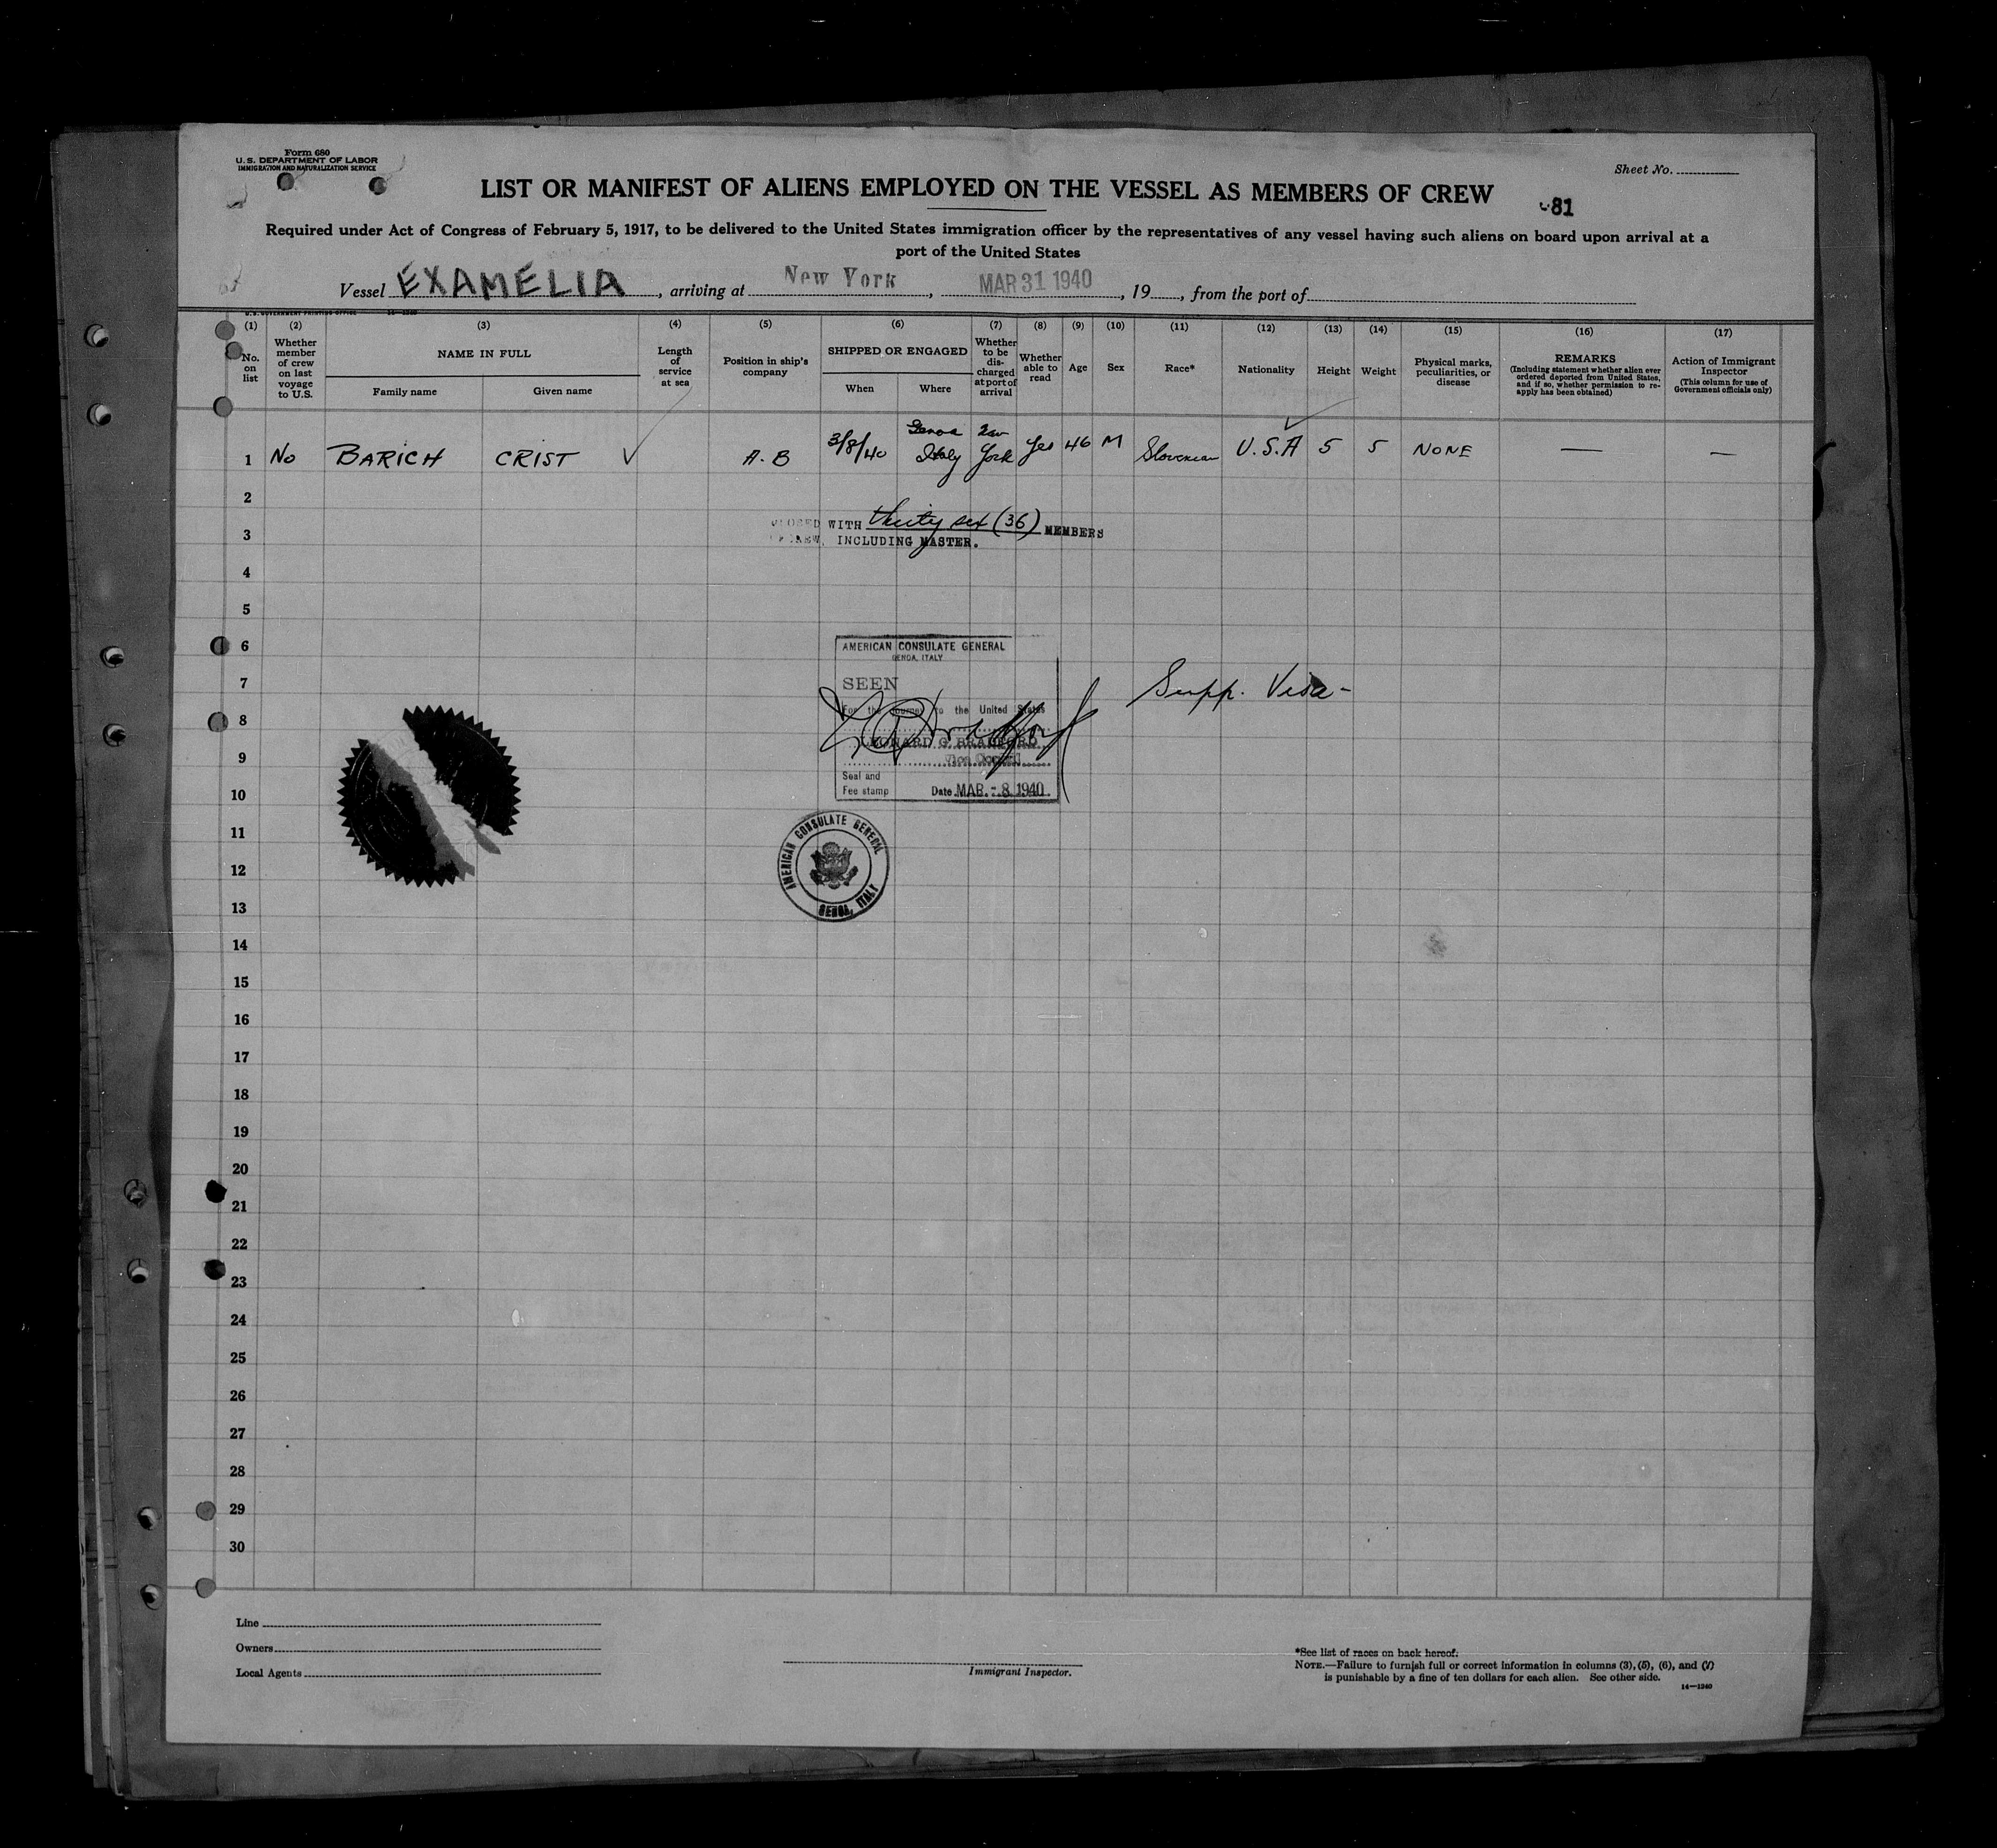 Form 680
U. S. DEPARTMENT OF LABOR
IMMIGRATION AND NATURALIZATION SERVICE
Sheet No.
LIST OR MANIFEST OF ALIENS EMPLOYED ON THE VESSEL AS MEMBERS OF CREW
81
Required under Act of Congress of February 5, 1917, to be delivered to the United States immigration officer by the representatives of any vessel having such aliens on board upon arrival at a
port of the United States
Vessel EXAMELIA, arriving at New York, MAR 31 1940, 19, from the port of
U. S. GOVERNMENT PRINTING OFFICE 14—1240
(1) (2) (3) (4) (5) (6) (7) (8) (9) (10) (11) (12) (13) (14) (15) (16) (17)
No. on list
Whether member of crew on last voyage to U.S.
NAME IN FULL
Family name
Given name
Length of service at sea
Position in ship's company
SHIPPED OR ENGAGED
When
Where
Whether to be discharged at port of arrival
Whether able to read
Age
Sex
Race*
Nationality
Height
Weight
Physical marks, peculiarities, or disease
REMARKS
(Including statement whether alien ever ordered deported from United States, and if so, whether permission to reapply has been obtained)
Action of Immigrant Inspector
(This column for use of Government officials only)
1 No BARICH CRIST A. B 3/8/40 Genoa Italy New York Yes 46 M Slovenian U.S.A 5 5 NONE — —
2
CLOSED WITH thirty six (36) MEMBERS
3
CREW, INCLUDING MASTER.
4
5
6
AMERICAN CONSULATE GENERAL
GENOA, ITALY
7
SEEN
Supp. Visa -
8
For the journey to the United States
LEONARD G. BRADFORD
9
Vice Consul
Seal and
Fee stamp
10
Date MAR. - 8 1940
11
AMERICAN CONSULATE GENERAL
12
GENOA, ITALY
13
14
15
16
17
18
19
20
21
22
23
24
25
26
27
28
29
30
Line
Owners
Local Agents
Immigrant Inspector.
*See list of races on back hereof.
NOTE.—Failure to furnish full or correct information in columns (3), (5), (6), and (7)
is punishable by a fine of ten dollars for each alien. See other side.
14—1240